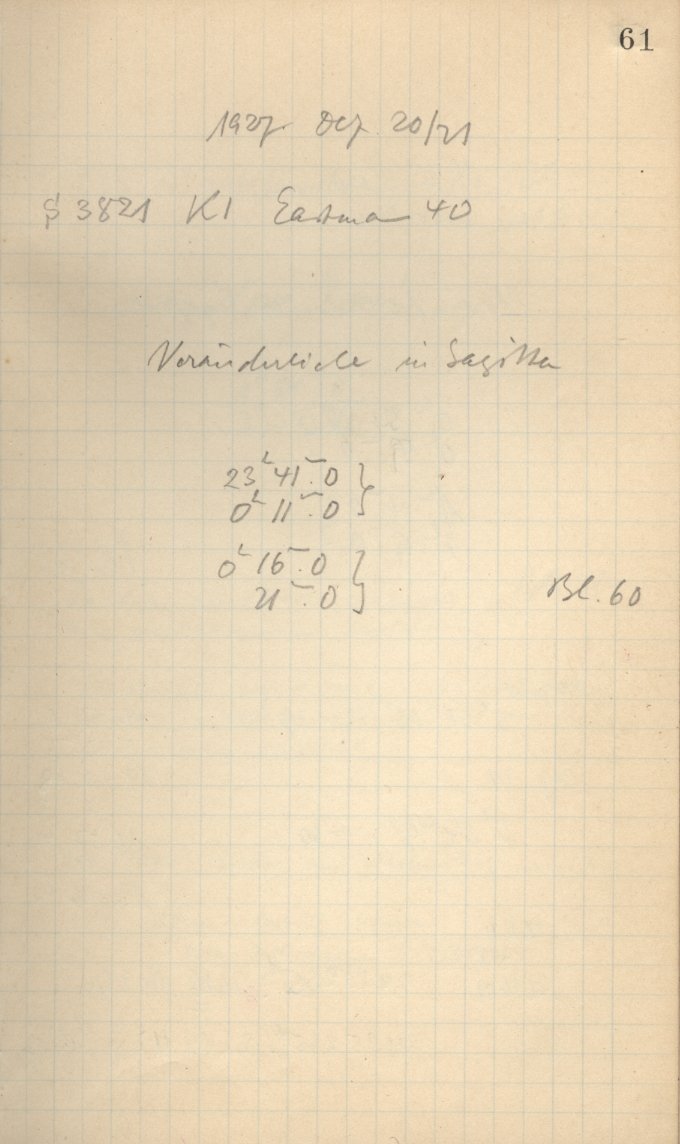 61
1927 Dez 20/21
S 3821 K1 Eastman 40
Veränderliche in Sagitta
23ʰ 41ᵐ.0 }
0ʰ 11ᵐ.0
0ʰ 16ᵐ.0 }
21ᵐ.0
Bl. 60